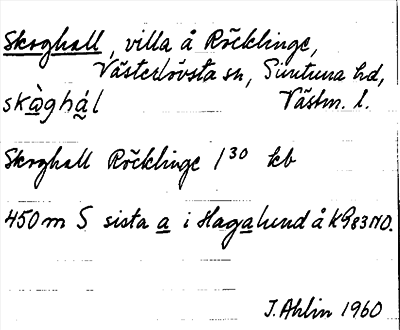 Skoghall, villa å Röcklinge,
Västerlövsta sn, Simtuna hd,
skàghál Västm. l.
Skoghall Röcklinge 1³⁰ kb
450 m S sista a i Hagalund å K983NO.
J. Ahlin 1960